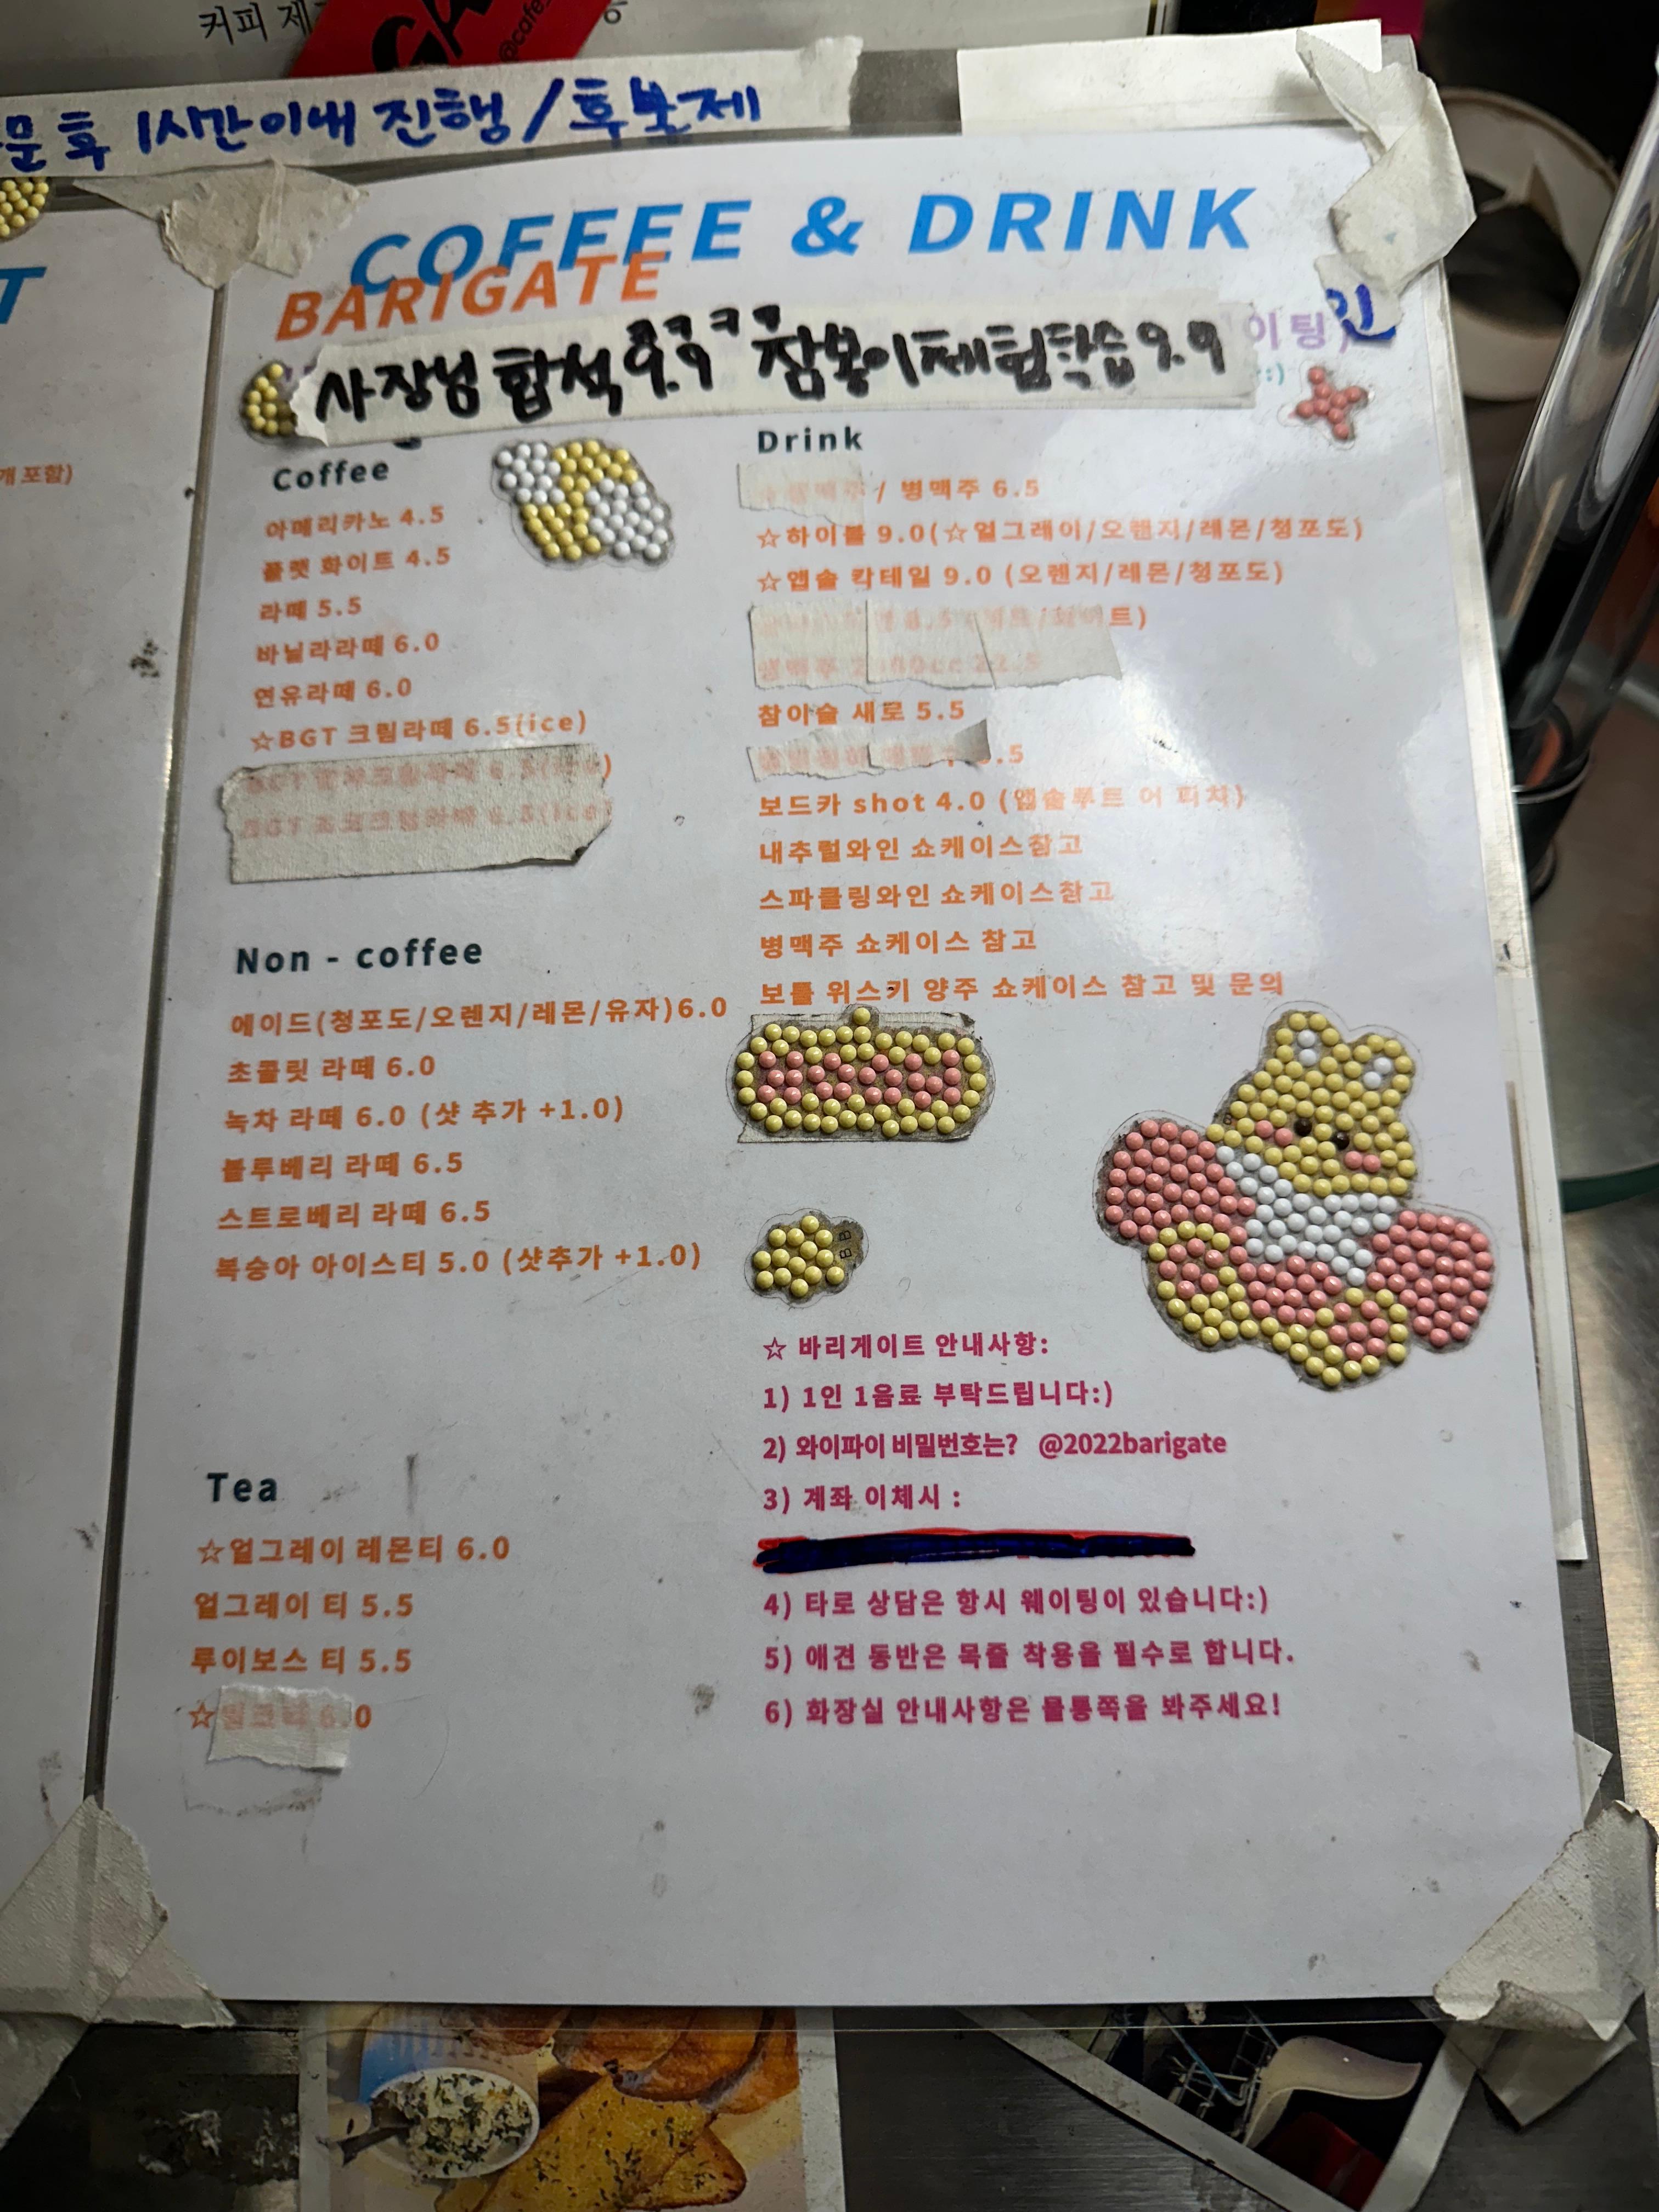 커피 제
@cafe_
문 후 1시간이내 진행 / 후불제
T
개 포함)
COFFEE & DRINK
BARIGATE
인
이팅)
:)
ㅋㅋㅋㅋ
사장님 합석 9.9 참봉이체험학습 9.9
Coffee
아메리카노 4.5
플랫 화이트 4.5
라떼 5.5
바닐라라떼 6.0
연유라떼 6.0
☆BGT 크림라떼 6.5(ice)
Non - coffee
에이드(청포도/오렌지/레몬/유자)6.0
초콜릿 라떼 6.0
녹차 라떼 6.0 (샷 추가 +1.0)
블루베리 라떼 6.5
스트로베리 라떼 6.5
복숭아 아이스티 5.0 (샷추가 +1.0)
Tea
☆얼그레이 레몬티 6.0
얼그레이 티 5.5
루이보스 티 5.5
☆ 6.0
Drink
/ 병맥주 6.5
☆하이볼 9.0(☆얼그레이/오렌지/레몬/청포도)
☆앱솔 칵테일 9.0 (오렌지/레몬/청포도)
트)
참이슬 새로 5.5
.5
보드카 shot 4.0 (앱솔루트 어 피치)
내추럴와인 쇼케이스참고
스파클링와인 쇼케이스참고
병맥주 쇼케이스 참고
보틀 위스키 양주 쇼케이스 참고 및 문의
☆ 바리게이트 안내사항:
1) 1인 1음료 부탁드립니다:)
2) 와이파이 비밀번호는? @2022barigate
3) 계좌 이체시 :
4) 타로 상담은 항시 웨이팅이 있습니다:)
5) 애견 동반은 목줄 착용을 필수로 합니다.
6) 화장실 안내사항은 물통쪽을 봐주세요!